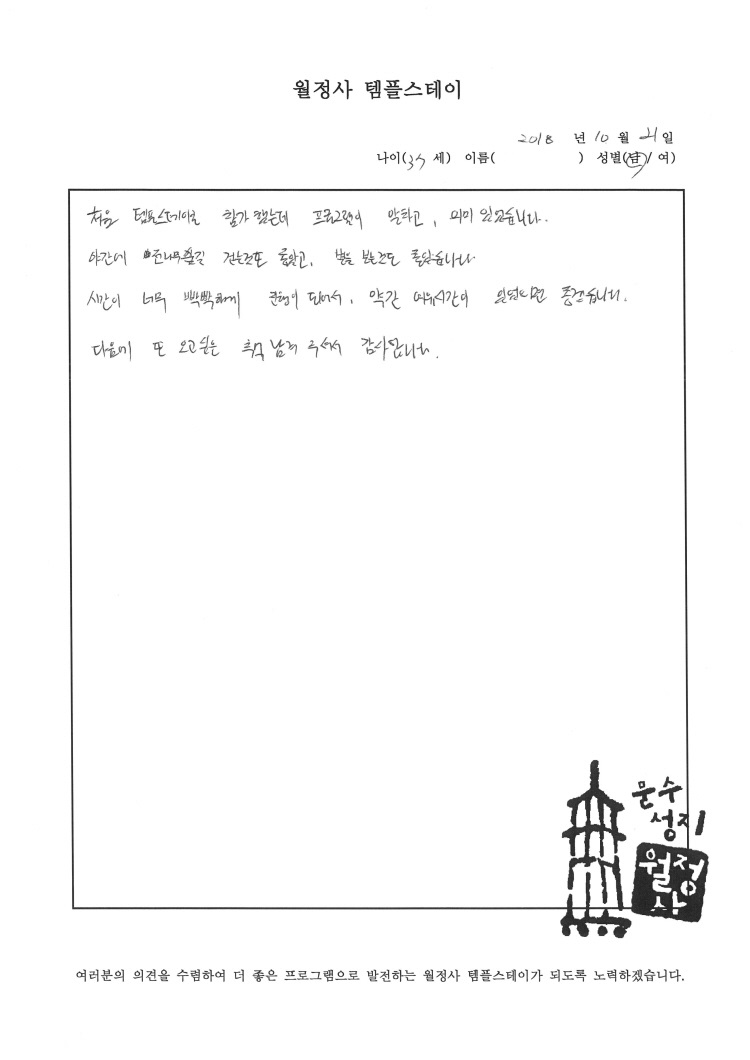 월정사 템플스테이
2018 년 10 월 21 일
나이( 세) 이름( ) 성별(남/ 여)
처음 템플스테이로 참가 했는데 프로그램이 알차고, 의미 있었습니다.
야간에 전나무숲길 걷는것도 좋았고, 별을 보는것도 좋았습니다
시간이 너무 빡빡하게 진행이 되어서, 약간 여유시간이 있었으면 좋겠습니다.
다음에 또 오고 싶은 추억 남겨 주셔서 감사합니다.
문수
성지
월정
사
여러분의 의견을 수렴하여 더 좋은 프로그램으로 발전하는 월정사 템플스테이가 되도록 노력하겠습니다.